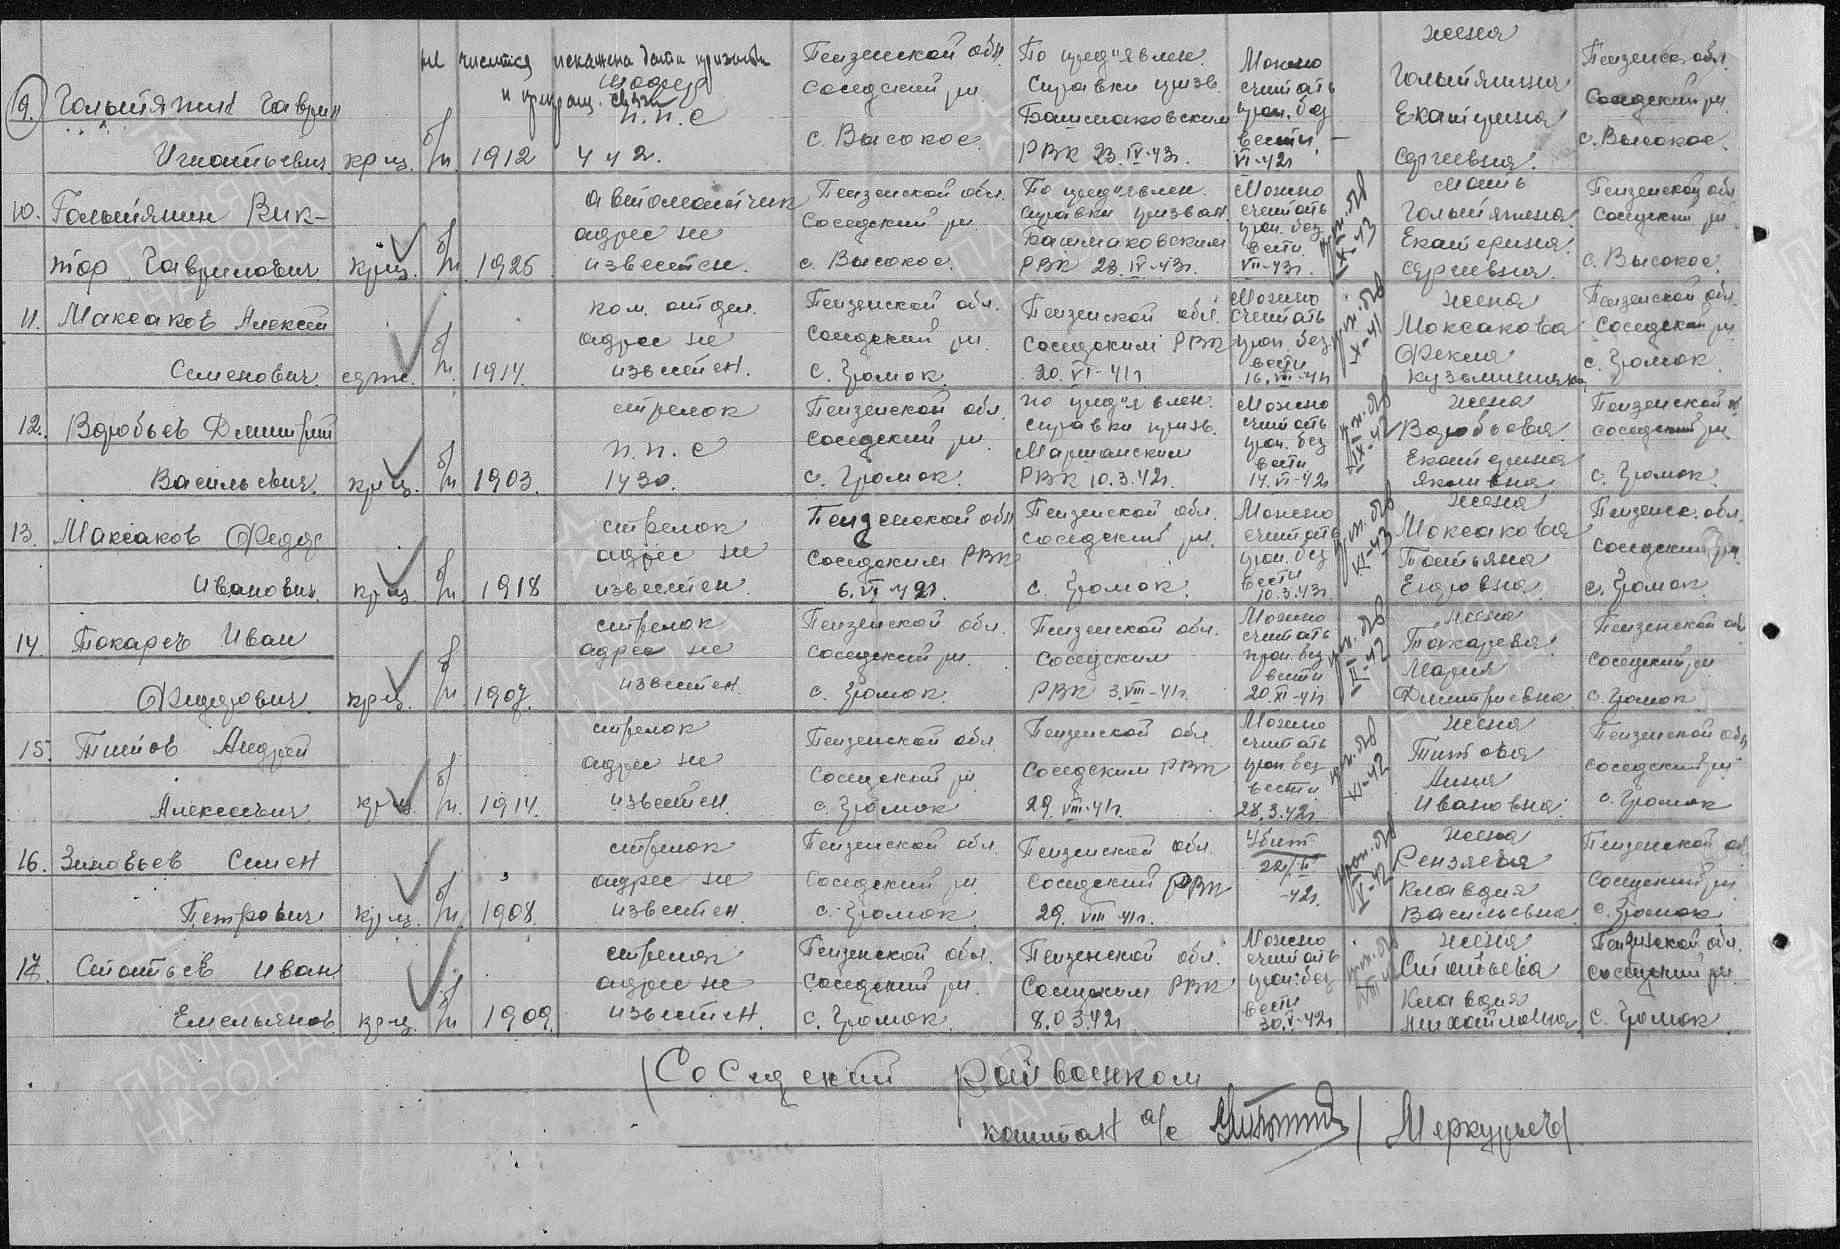 не числится искажена дата призыва
и прекращ. связи
9. Гольтяпин Гаврил
Игнатьевич кр-ц. б/п 1912
шофер
п.п.с
442.
Пензенской обл.
Соседский р-н.
с. Высокое.
По пред"явлен.
справки призв.
Башмаковским
РВК 23.IV-43г.
Можно
считать
проп. без
вести
VI-42г.
жена
Гольтяпина
Екатерина
Сергеевна.
Пензенс. обл.
Соседский р-н
с. Высокое.
10. Гольтяпин Вик-
тор Гаврилович кр-ц. б/п 1925
автоматчик
адрес не
известен.
Пензенской обл.
Соседский р-н.
с. Высокое.
По пред"явлен.
справки призван
Башмаковским
РВК 23.IV-43г.
Можно
считать
проп. без
вести
VII-43г.
пр. б/в
IX-43
мать
Гольтяпина
Екатерина
Сергеевна.
Пензенской обл
Соседский р-н
с. Высокое.
11. Максаков Алексей
Семенович. серж. б/п. 1914.
ком. отдел.
адрес не
известен.
Пензенской обл.
Соседский р-н.
с. Громок.
Пензенской обл.
Соседским РВК
20.VI-41г
Можно
считать
проп. без
вести
16.VIII-41г
пр. б/в
X-41
жена
Максакова
Фекла
Кузьминична
Пензенской обл.
Соседский р-н
с. Громок.
12. Воробьев Дмитрий
Васильевич. кр-ц. б/п 1903.
стрелок
п.п.с
1430.
Пензенской обл.
Соседский р-н.
с. Громок.
По пред"явлен.
справки призв.
Маршанским
РВК 10.3.42г.
Можно
считать
проп. без
вести
14.VI-42г
пр. б/в
IX-42
жена
Воробьева
Екатерина
Якимвна.
Пензенской об
Соседский р-н
с. Громок.
13. Максаков Федор
Иванович. кр-ц. б/п 1918
стрелок
адрес не
известен.
Пензенской обл
Соседским РВК
6.VI-42г.
Пензенской обл.
Соседский р-н.
с. Громок.
Можно
считать
проп. без
вести
10.3.43г.
пр. б/в
VI-43
жена
Максакова
Татьяна
Егоровна.
Пензенс. обл.
Соседский р-н.
с. Громок.
14. Токарев Иван
Федорович. кр-ц. б/п 1907.
стрелок
адрес не
известен.
Пензенской обл.
Соседский р-н.
с. Громок.
Пензенской обл.
Соседским
РВК 3.VIII-41г.
Можно
считать
проп. без
вести
20.XI-41г
пр. б/в
II-42
жена
Токарева
Мария
Дмитриевна
Пензенской об
Соседский р-н
с. Громок.
15. Титов Андрей
Алексеевич. кр-ц. б/п. 1914.
стрелок
адрес не
известен.
Пензенской обл.
Соседский р-н
с. Громок
Пензенской обл.
Соседским РВК
29.VIII-41г.
Можно
считать
проп. без
вести
28.3.42г.
пр. б/в
VI-42
жена
Титова
Анна
Ивановна.
Пензенской обл
Соседский р-н
с. Громок
16. Зиновьев Семен
Петрович. кр-ц. б/п. 1908.
стрелок
адрес не
известен.
Пензенской обл.
Соседский р-н.
с. Громок
Пензенской обл.
Соседский РВК
29. VIII-41г.
Убит
22/II
-42г.
проп. б/в
V-42
жена
Рензяева
Клавдия
Васильевна
Пензенской об
Соседский р-н
с. Громок
17. Статьев Иван
Емельянов. кр-ц. б/п 1909.
стрелок
адрес не
известен.
Пензенской обл.
Соседский р-н.
с. Громок.
Пензенской обл.
Соседским РВК
8.03.42г
Можно
считать
проп. без
вести
30.V-42г
проп. б/в
VIII-42
жена
Статьева
Клавдия
Михайловна.
Пензенской обл.
Соседский р-н.
с. Громок.
/Соседский райвоенком
капитан а/с /Меркурьев/
ПАМЯТЬ НАРОДА